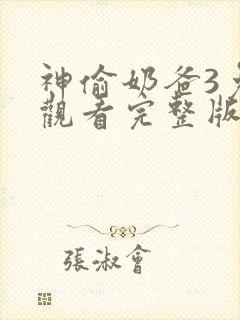 神偷奶爸3
觀看完整版
張淑會